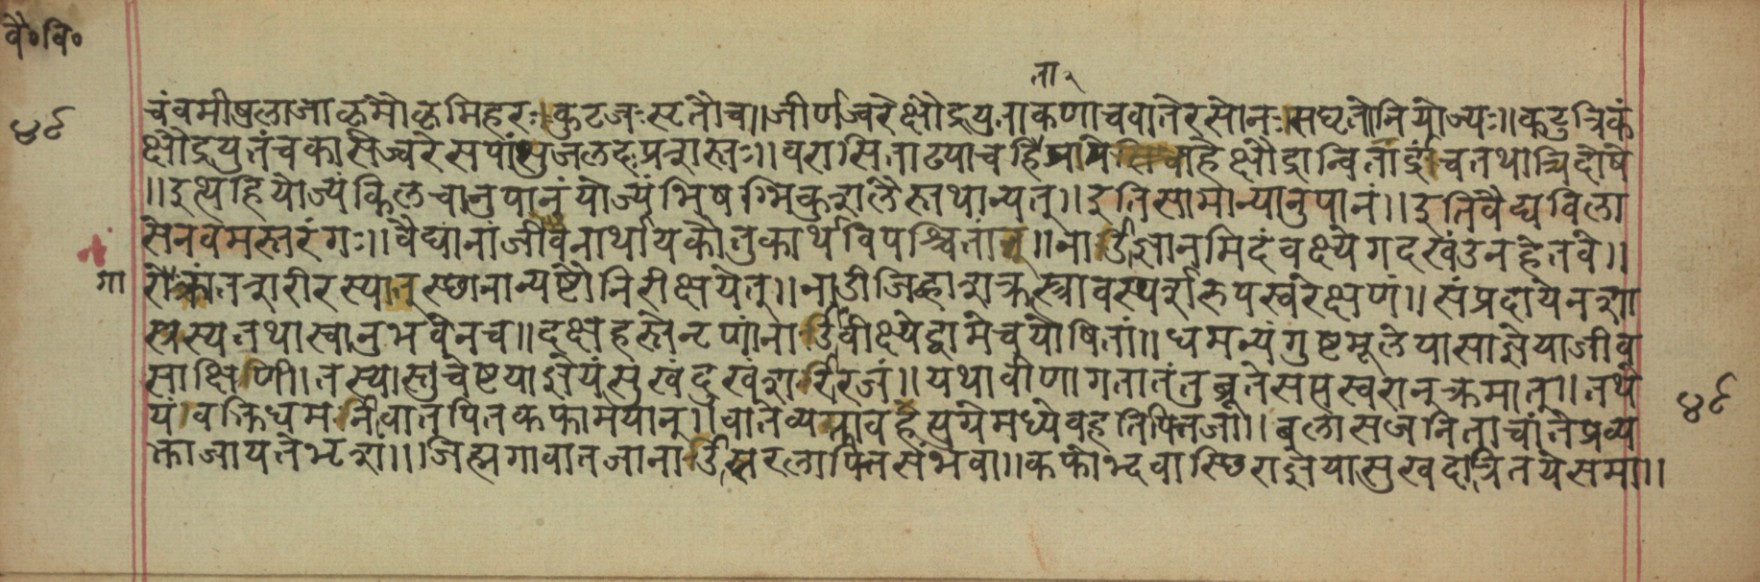 वै॰वि॰
ता
४९
चंवमीषुलाजाऌमौऌमिहरः।कुटजःस्टतौच॥जीर्णज्वरेक्षौद्रयुताकणाचवातेरसोनःसघृतोनियोज्यः॥कटुत्रिकं
क्षौद्रयुतंचकासेज्वरेसपांसुजलदःप्रशस्तः॥वरासिताढ्याचहि क्षौद्रान्वितार्द्रंचतथात्रिदोषे
॥इत्थंहियोज्यंकिलचानुपानंयोज्यंभिषग्भिकुशलैस्तथान्यत्॥इतिसामान्यानुपानं॥इतिवैद्यविला
सेनवमस्तरंगः॥वैद्यानांजीवनार्थायकौतुकार्थविपश्चितां॥नाडीज्ञानमिदंवक्ष्येगदखंडनहेतवे॥
गा
रोक्रांतशरीरस्यस्छानान्यष्टौनिरीक्षयेत्॥नाडीजिह्वाशकृन्मूत्रावस्पर्शरुपस्वरेक्षणं॥संप्रदायेनशा
स्त्रस्यतथास्वानुभवेनच॥दक्षहस्तेनृणांनाडींवीक्ष्येद्वामेचयोषितां॥धमन्यंगुष्टमूलेयासाज्ञेयाजीव
साक्षिणी।तस्यास्तुचेष्टयाज्ञेयंसुखंदुखंशरीरजं॥यथावीणागतातंतुब्रूतेसप्तस्वरान्क्रमात्॥तथे
यंवक्तिधमनीवातपित्तकफामयान्॥वातेव्यग्रावहेत्युग्रेमध्येवहतिपित्तजा॥बलासजनिताचांतेप्रव्य
क्ताजायतेभृशं॥जिह्मगावातजानाडीसरलापित्तसंभवा॥कफोद्भवास्छिराज्ञेयासुखदात्रितयेसमा॥
४९